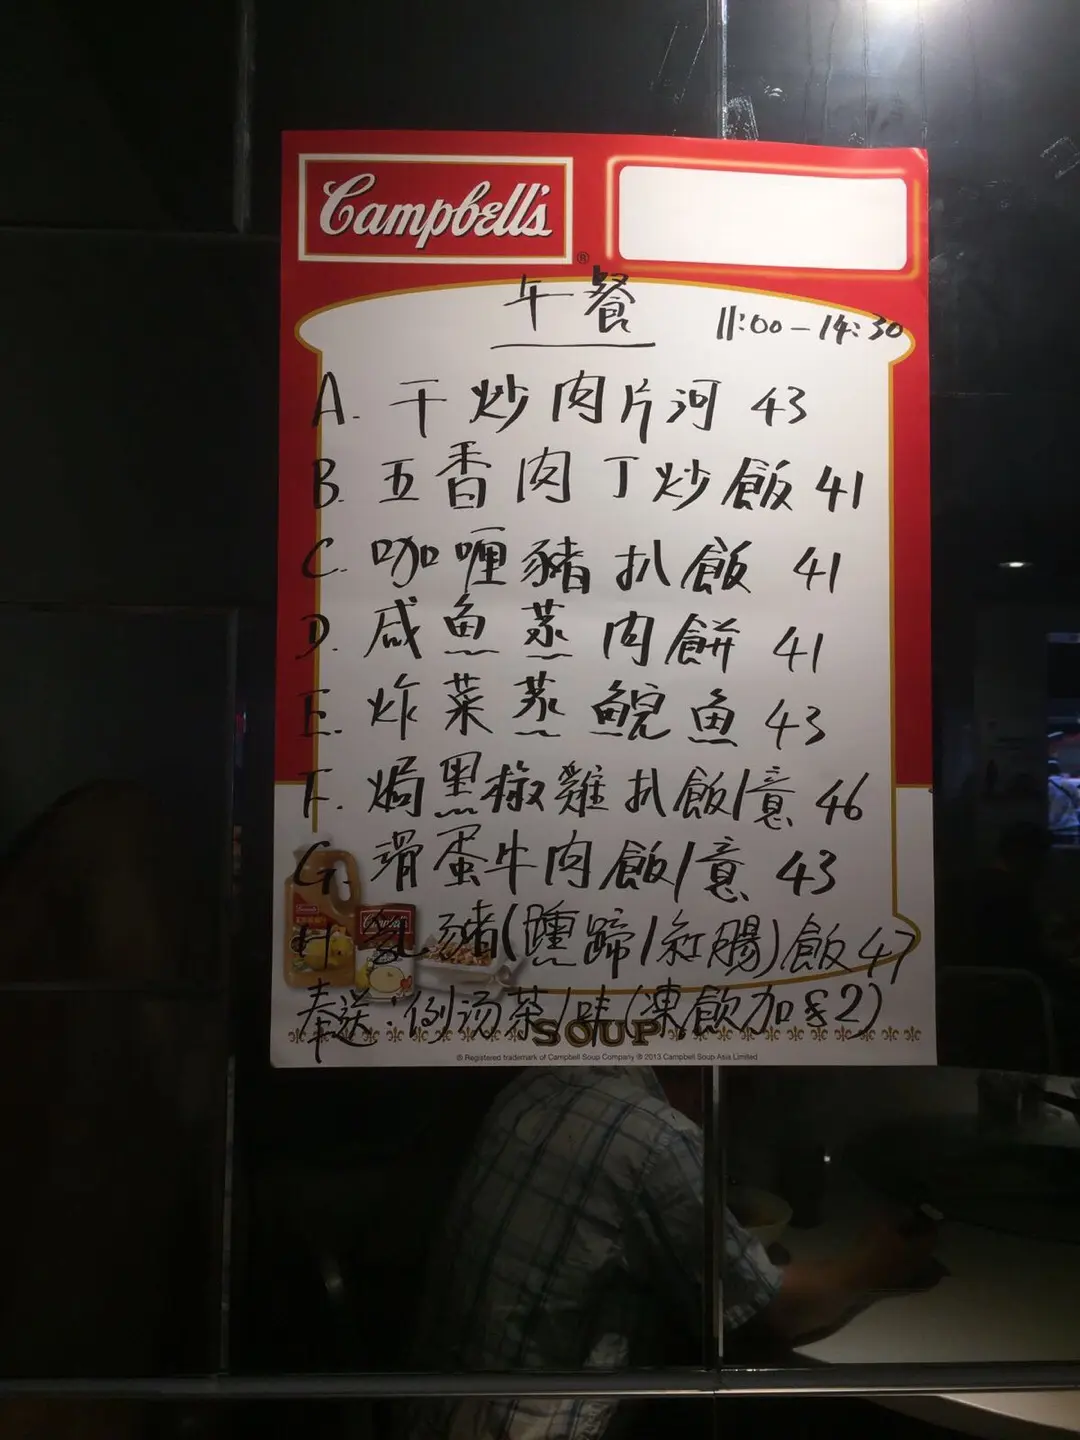 Campbell's
®
午餐
11:00-14:30
A. 干炒肉片河 43
B. 五香肉丁炒飯 41
C. 咖喱豬扒飯 41
D. 咸魚蒸肉餅 41
E. 炸菜蒸鯇魚 43
F. 焗黑椒雞扒飯/意 46
G. 滑蛋牛肉飯/意 43
H 乳豬(燻蹄/紅腸)飯 47
奉送:例汤茶/味(凍飲加$2)
SOUP
® Registered trademark of Campbell Soup Company © 2013 Campbell Soup Asia Limited